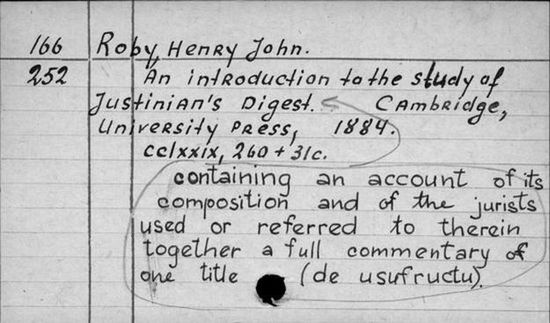 166 Roby, Henry John.
252 An introduction to the study of
Justinian's Digest. Cambridge,
University Press, 1884.
cclxxix, 260 + 31c.
containing an account of its
composition and of the jurists
used or referred to therein
together a full commentary of
one title (de usufructu).